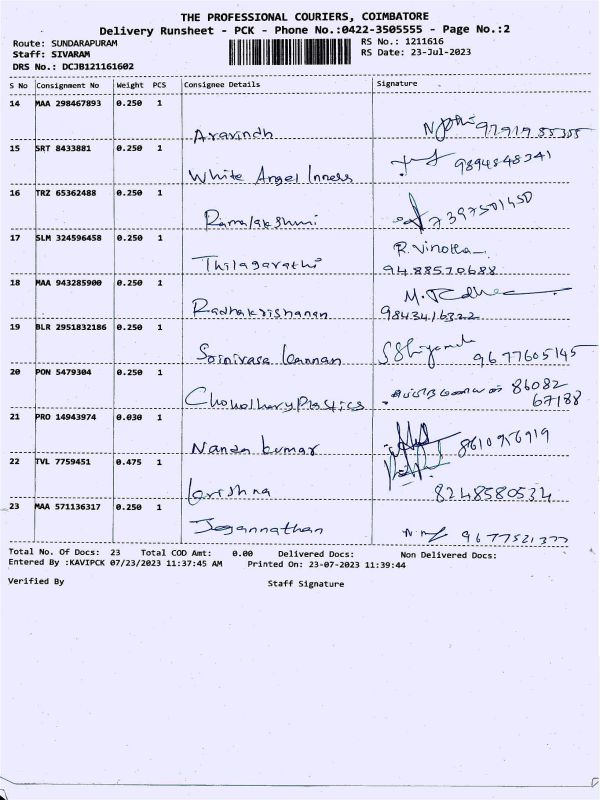 THE PROFESSIONAL COURIERS, COIMBATORE
Delivery Runsheet - PCK - Phone No.:0422-3505555 - Page No.:2
Route: SUNDARAPURAM RS No.: 1211616
Staff: SIVARAM RS Date: 23-Jul-2023
DRS No.: DCJB121161602
S No Consignment No Weight PCS Consignee Details Signature
14 MAA 298467893 0.250 1
Aravindh
15 SRT 8433881 0.250 1
White Angel Inners 9894848341
16 TRZ 65362488 0.250 1
Ramalakshmi 7397501450
17 SLM 324596458 0.250 1 R. Vinotha
Thilagavathi 9488570688
18 MAA 943285900 0.250 1
Radhakrishanan 9843416322
19 BLR 2951832186 0.250 1
Srinivasa kannan 9677605145
20 PON 5479304 0.250 1 86082
Chowdhary Plastics 67188
21 PRO 14943974 0.030 1
Nanda kumar 8610956919
22 TVL 7759451 0.475 1
krishna 8248580534
23 MAA 571136317 0.250 1
Jegannathan
Total No. Of Docs: 23 Total COD Amt: 0.00 Delivered Docs: Non Delivered Docs:
Entered By :KAVIPCK 07/23/2023 11:37:45 AM Printed On: 23-07-2023 11:39:44
Verified By Staff Signature